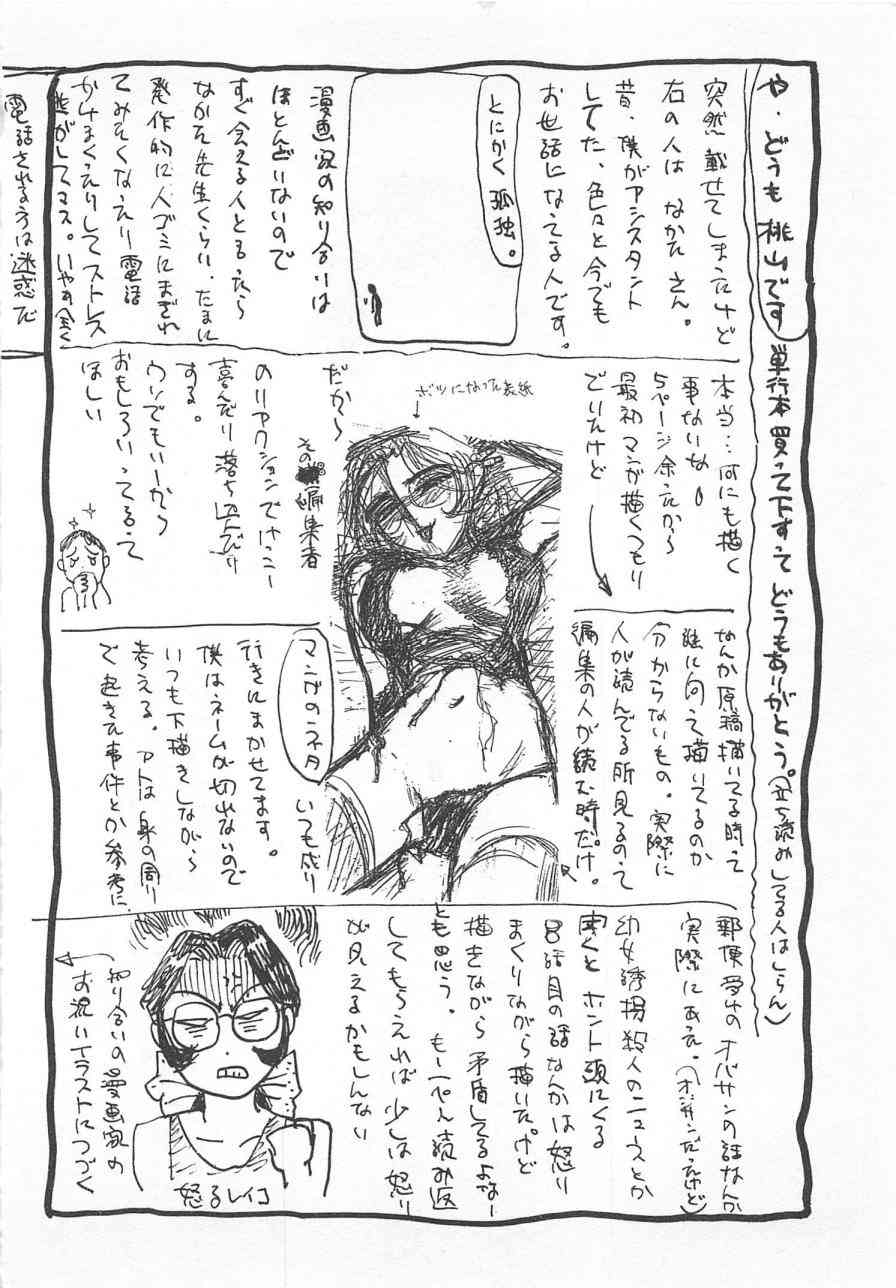 や・どうも 桃山です
単行本買って下すって どうもありがとう。(立ち読みしてる人はしらん)
突然 載せてしまったけど
右の人は なかた さん。
昔、僕がアシスタント
してた、色々と今でも
お世話になってる人です。
とにかく 孤独。
漫画家の知り合いは
ほとんどいないので
すぐ会える人とゆったら
なかた先生くらい、たまに
発作的に人ゴミにまぎれ
てみたくなったり電話
かけまくったりしてストレス
逃がしてマス。いやすまん全く
電話される方は迷惑だ
本当…何にも描く
事ないな。
5ページ余ったから
最初 マンガ描くつもり
でいたけど
なんか原稿描いてる時って
誰に向って描いてるのか
分からないもの。実際に
人が読んでる所見るのって
編集の人が読む時だけ。
ボツになった表紙
だから
その編集者
のリアクションでけっこー
喜んだり落ち込んだり
する。
ウソでもいーから
おもしろいってゆって
ほしい
マンガのネタ
いつも成り
行きにまかせてます。
僕はネームが切れないので
いつも下描きしながら
考える。アトは身の回り
で起きた事件とか参考に
郵便受けのオバサンの話なんか
実際にあった。(オジサンだったけど)
幼女誘拐殺人のニュースとか
聞くと ホント頭にくる
8話目の話なんかは怒り
まくりながら描いたけど
描きながら矛盾してるよなー
とも思う。もー一ぺん読み返
してもらえれば 少しは怒り
が見えるかもしんない
怒るレイコ
知り合いの漫画家の
お祝いイラストにつづく